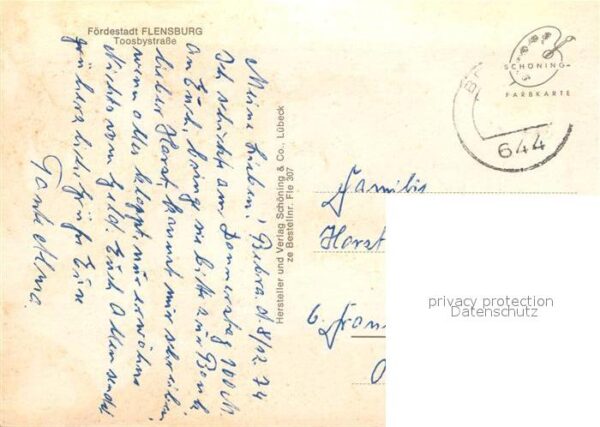 Fördestadt FLENSBURG
Toosbystraße
Meine Lieben! Bebra. d. 8/12. 74
Ich schickte am Donnerstag 100 M.
an Euch, bring sie bitte zur Bank
lieber Horst kannst mir schreiben,
wenn alles kloppt, nur erwähne
Nichts vom Geld Euch Allen sendet
herzliche Grüße Eure
Tante Alma.
Hersteller und Verlag Schöning & Co., Lübeck
ze Bestellnr. Fle 307
SCHÖNING-
FARBKARTE
644
Familie
Horst
6. Fran
privacy protection
Datenschutz